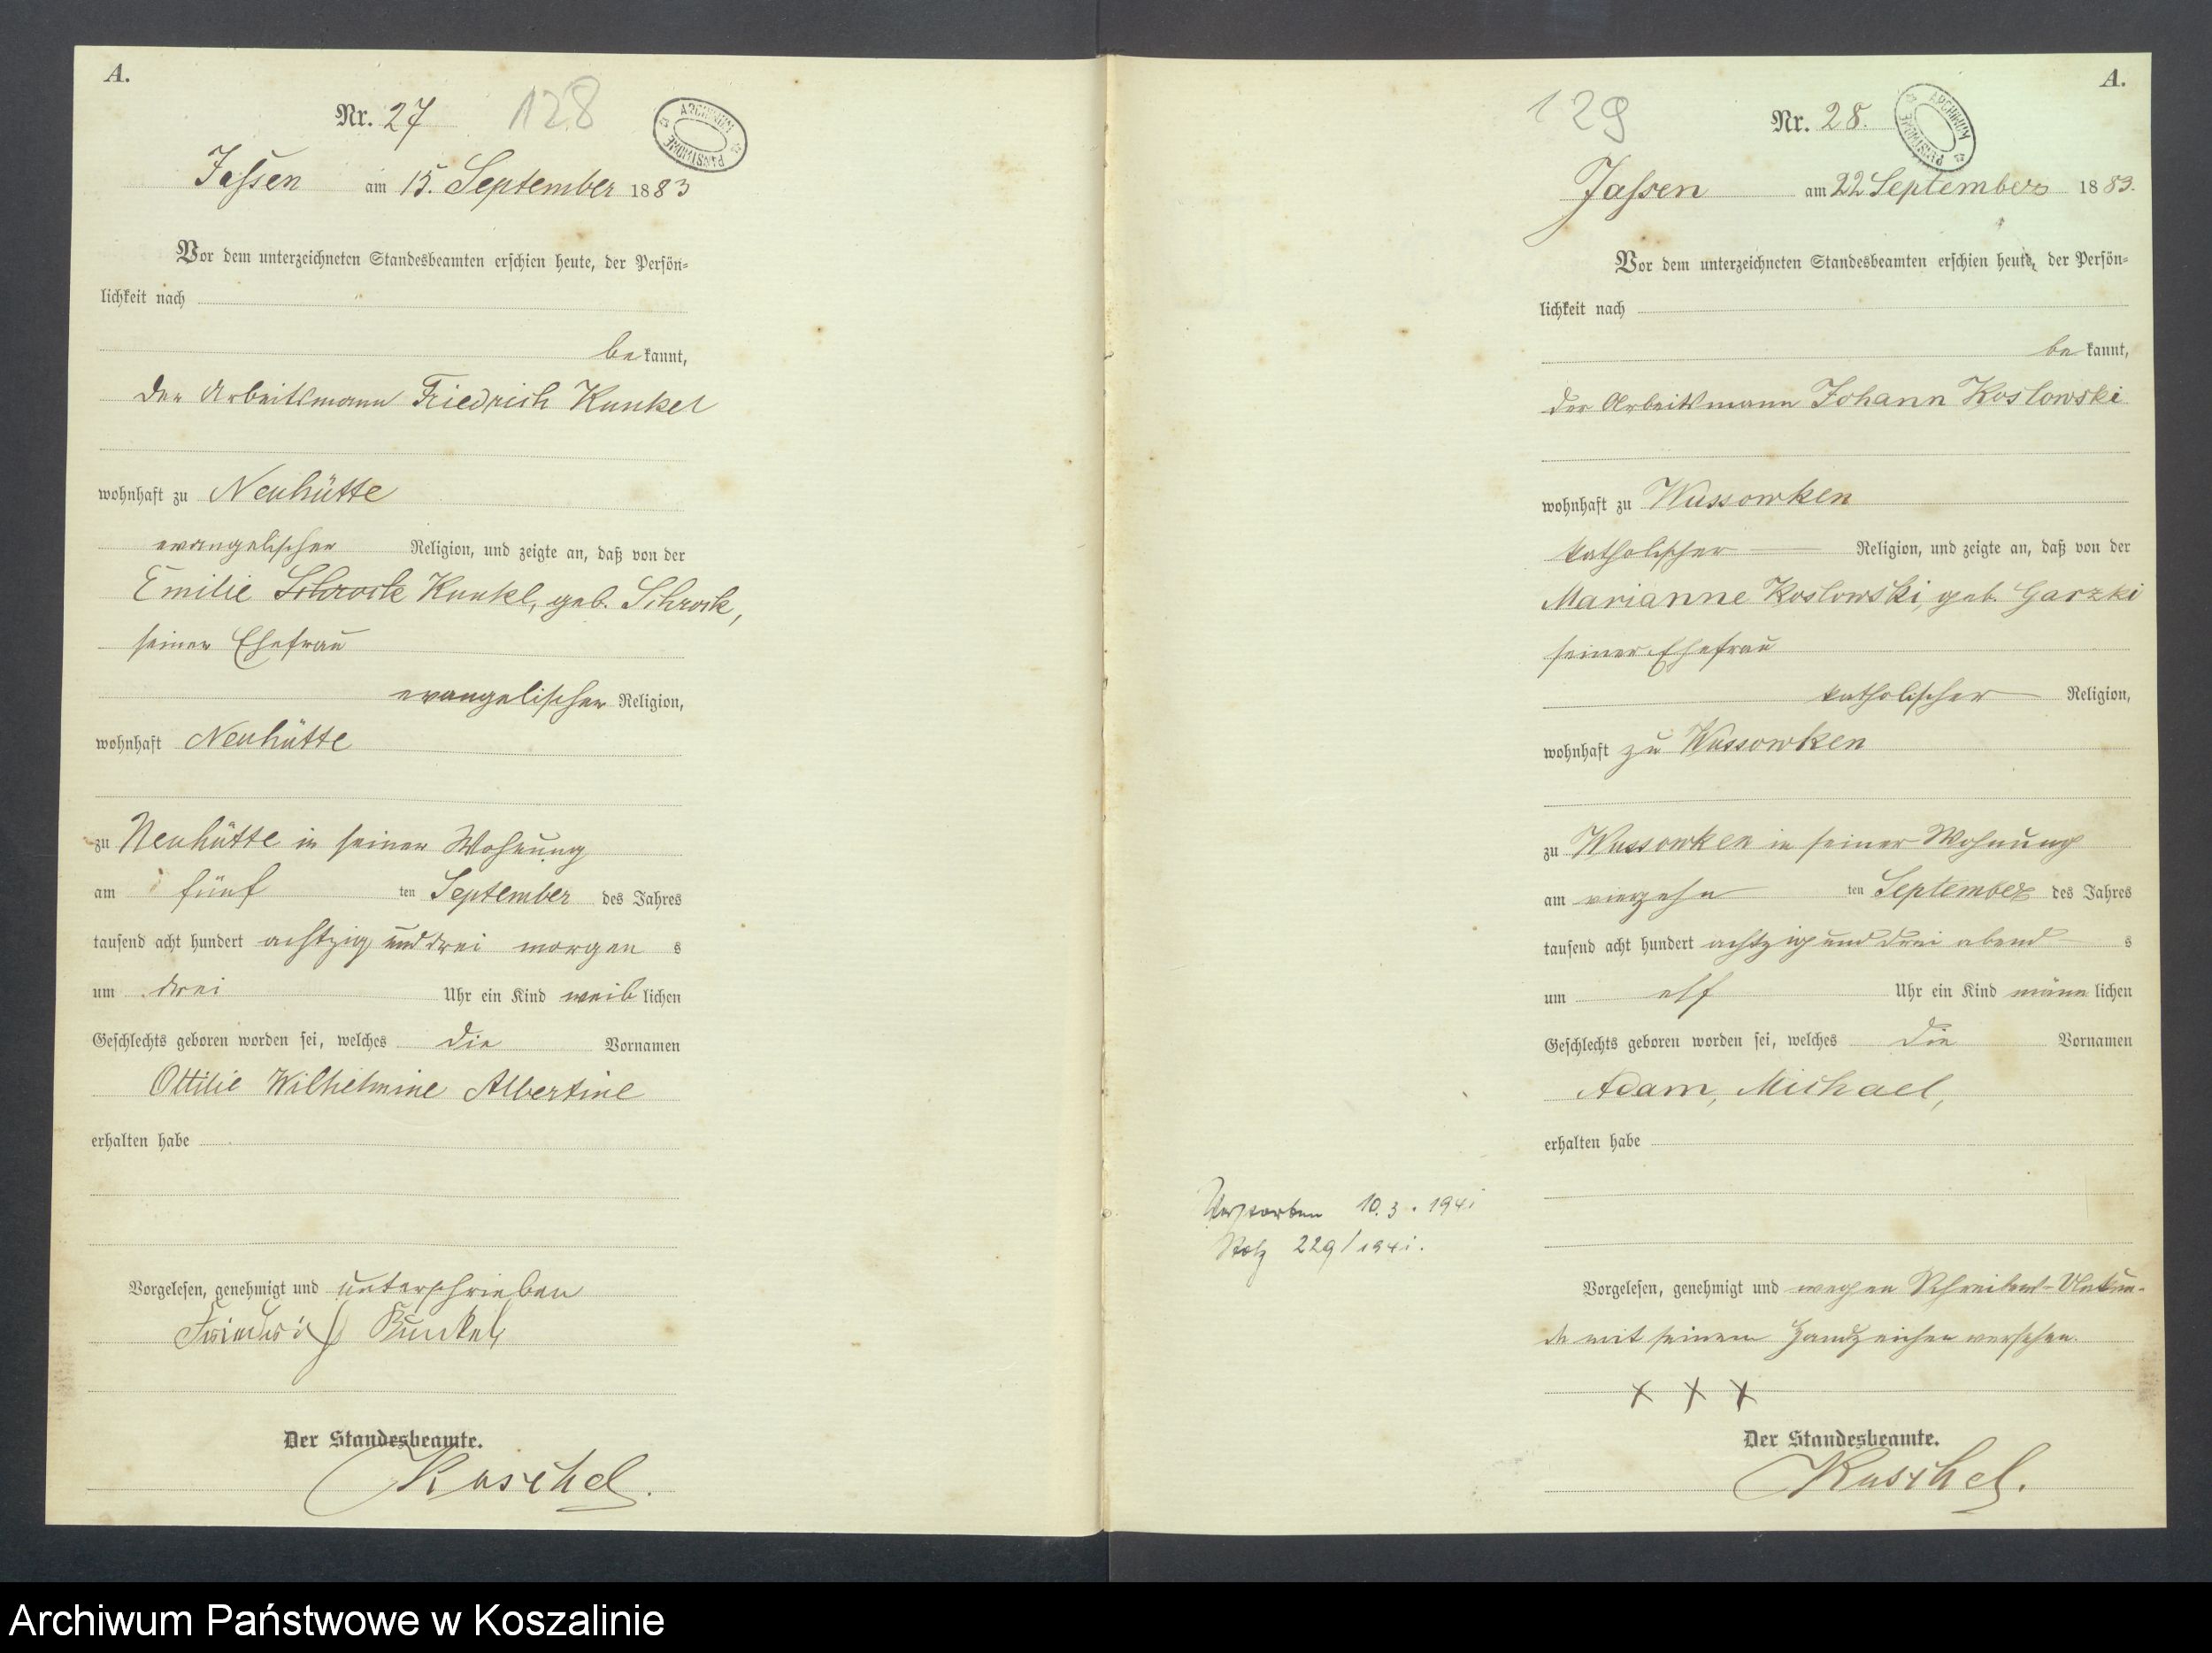 A.
Nr. 27 128
ARCHIWUM PAŃSTWOWE
Jassen am 15. September 1883
Vor dem unterzeichneten Standesbeamten erschien heute, der Persön-
lichkeit nach
be kannt,
der Arbeitsmann Friedrich Kunkel
wohnhaft zu Neuhütte
evangelischer Religion, und zeigte an, daß von der
Emilie Schrock Kunkel, geb. Schrock,
seiner Ehefrau
evangelischer Religion,
wohnhaft Neuhütte
zu Neuhütte in seiner Wohnung
am fünf ten September des Jahres
tausend acht hundert achtzig und drei morgen s
um drei Uhr ein Kind weib lichen
Geschlechts geboren worden sei, welches die Vornamen
Ottilie Wilhelmine Albertine
erhalten habe
Vorgelesen, genehmigt und unterschrieben
Friedrich Kunkel
Der Standesbeamte.
Kuschel.
A.
129 Nr. 28.
ARCHIWUM PAŃSTWOWE
Jassen am 22 September 1883.
Vor dem unterzeichneten Standesbeamten erschien heute, der Persön-
lichkeit nach
be kannt,
der Arbeitsmann Johann Koslowski
wohnhaft zu Wussowken
katholischer Religion, und zeigte an, daß von der
Marianne Koslowski, geb. Garzki
seiner Ehefrau
katholischer Religion,
wohnhaft zu Wussowken
zu Wussowken in seiner Wohnung
am vierzehn ten September des Jahres
tausend acht hundert achtzig und drei abend s
um elf Uhr ein Kind männ lichen
Geschlechts geboren worden sei, welches die Vornamen
Adam, Michael,
erhalten habe
Verstorben 10.3.1941
Stolp 229/1941.
Vorgelesen, genehmigt und wegen Schreibens-Unkun-
de mit seinem Handzeichen versehen.
x x x
Der Standesbeamte.
Kuschel.
Archiwum Państwowe w Koszalinie